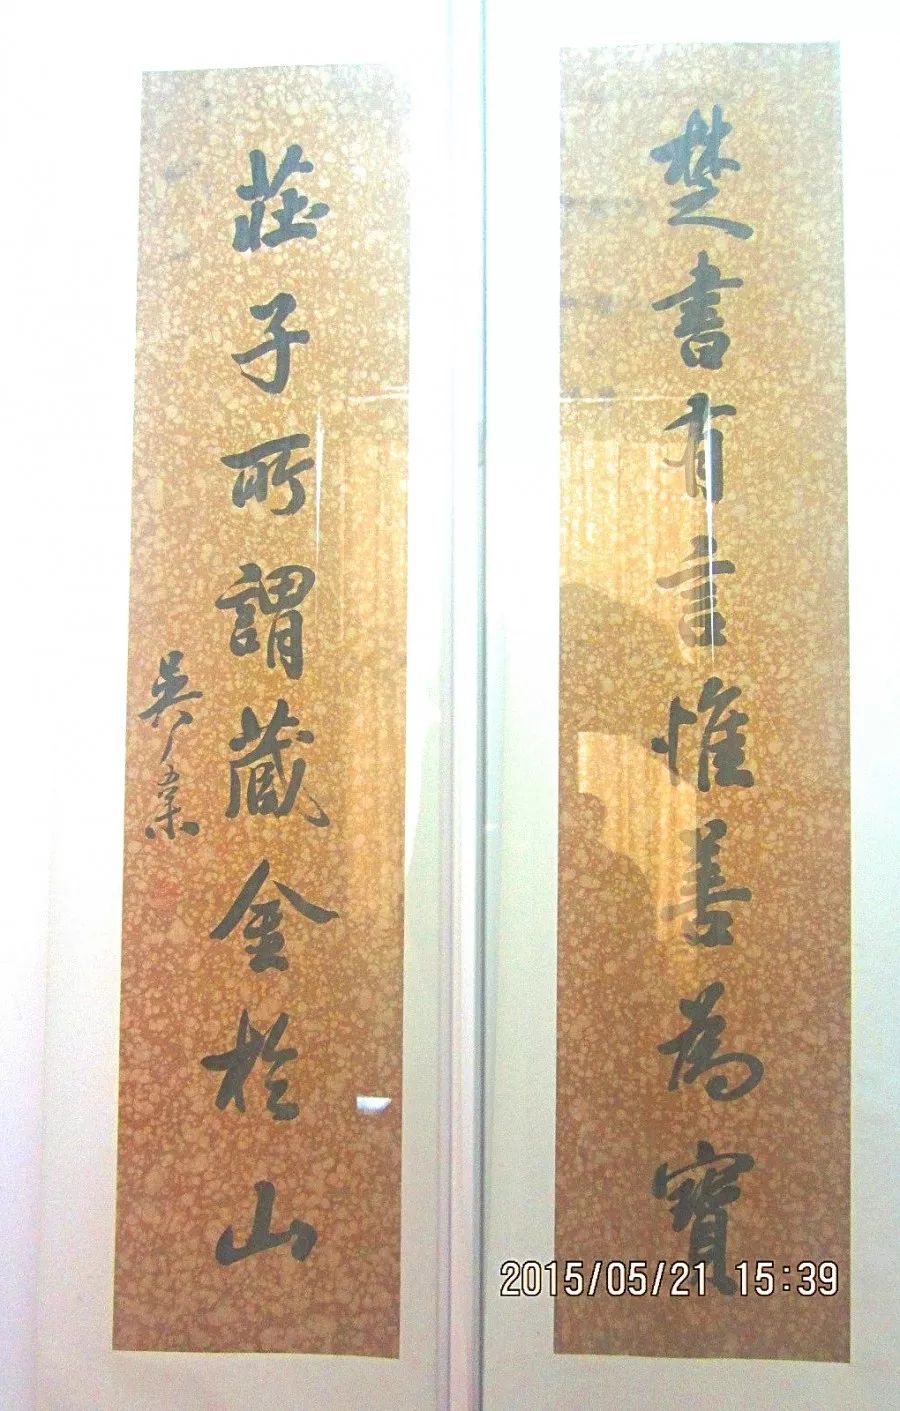 楚書有言惟善為寶
莊子所謂藏金於山
吳
2015/05/21 15:39